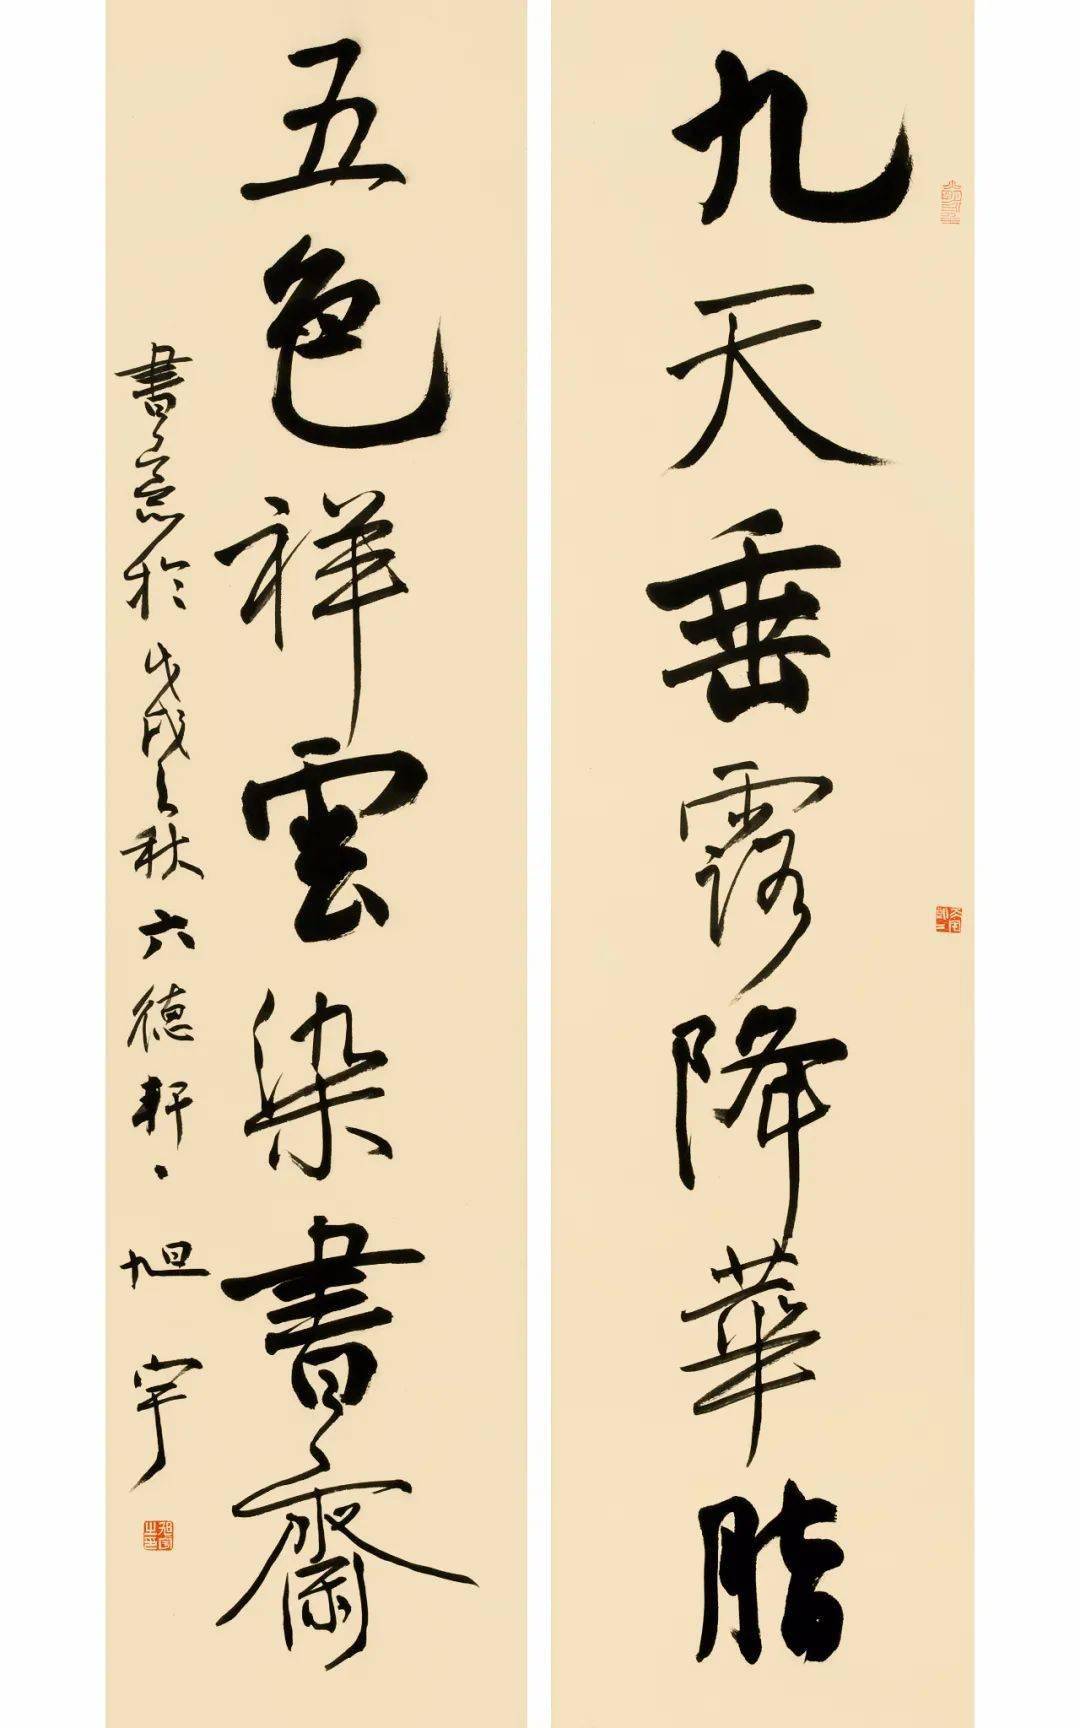 九天垂露降華脂
五色祥雲染書齋
書意於戊戌之秋六德軒、旭宇